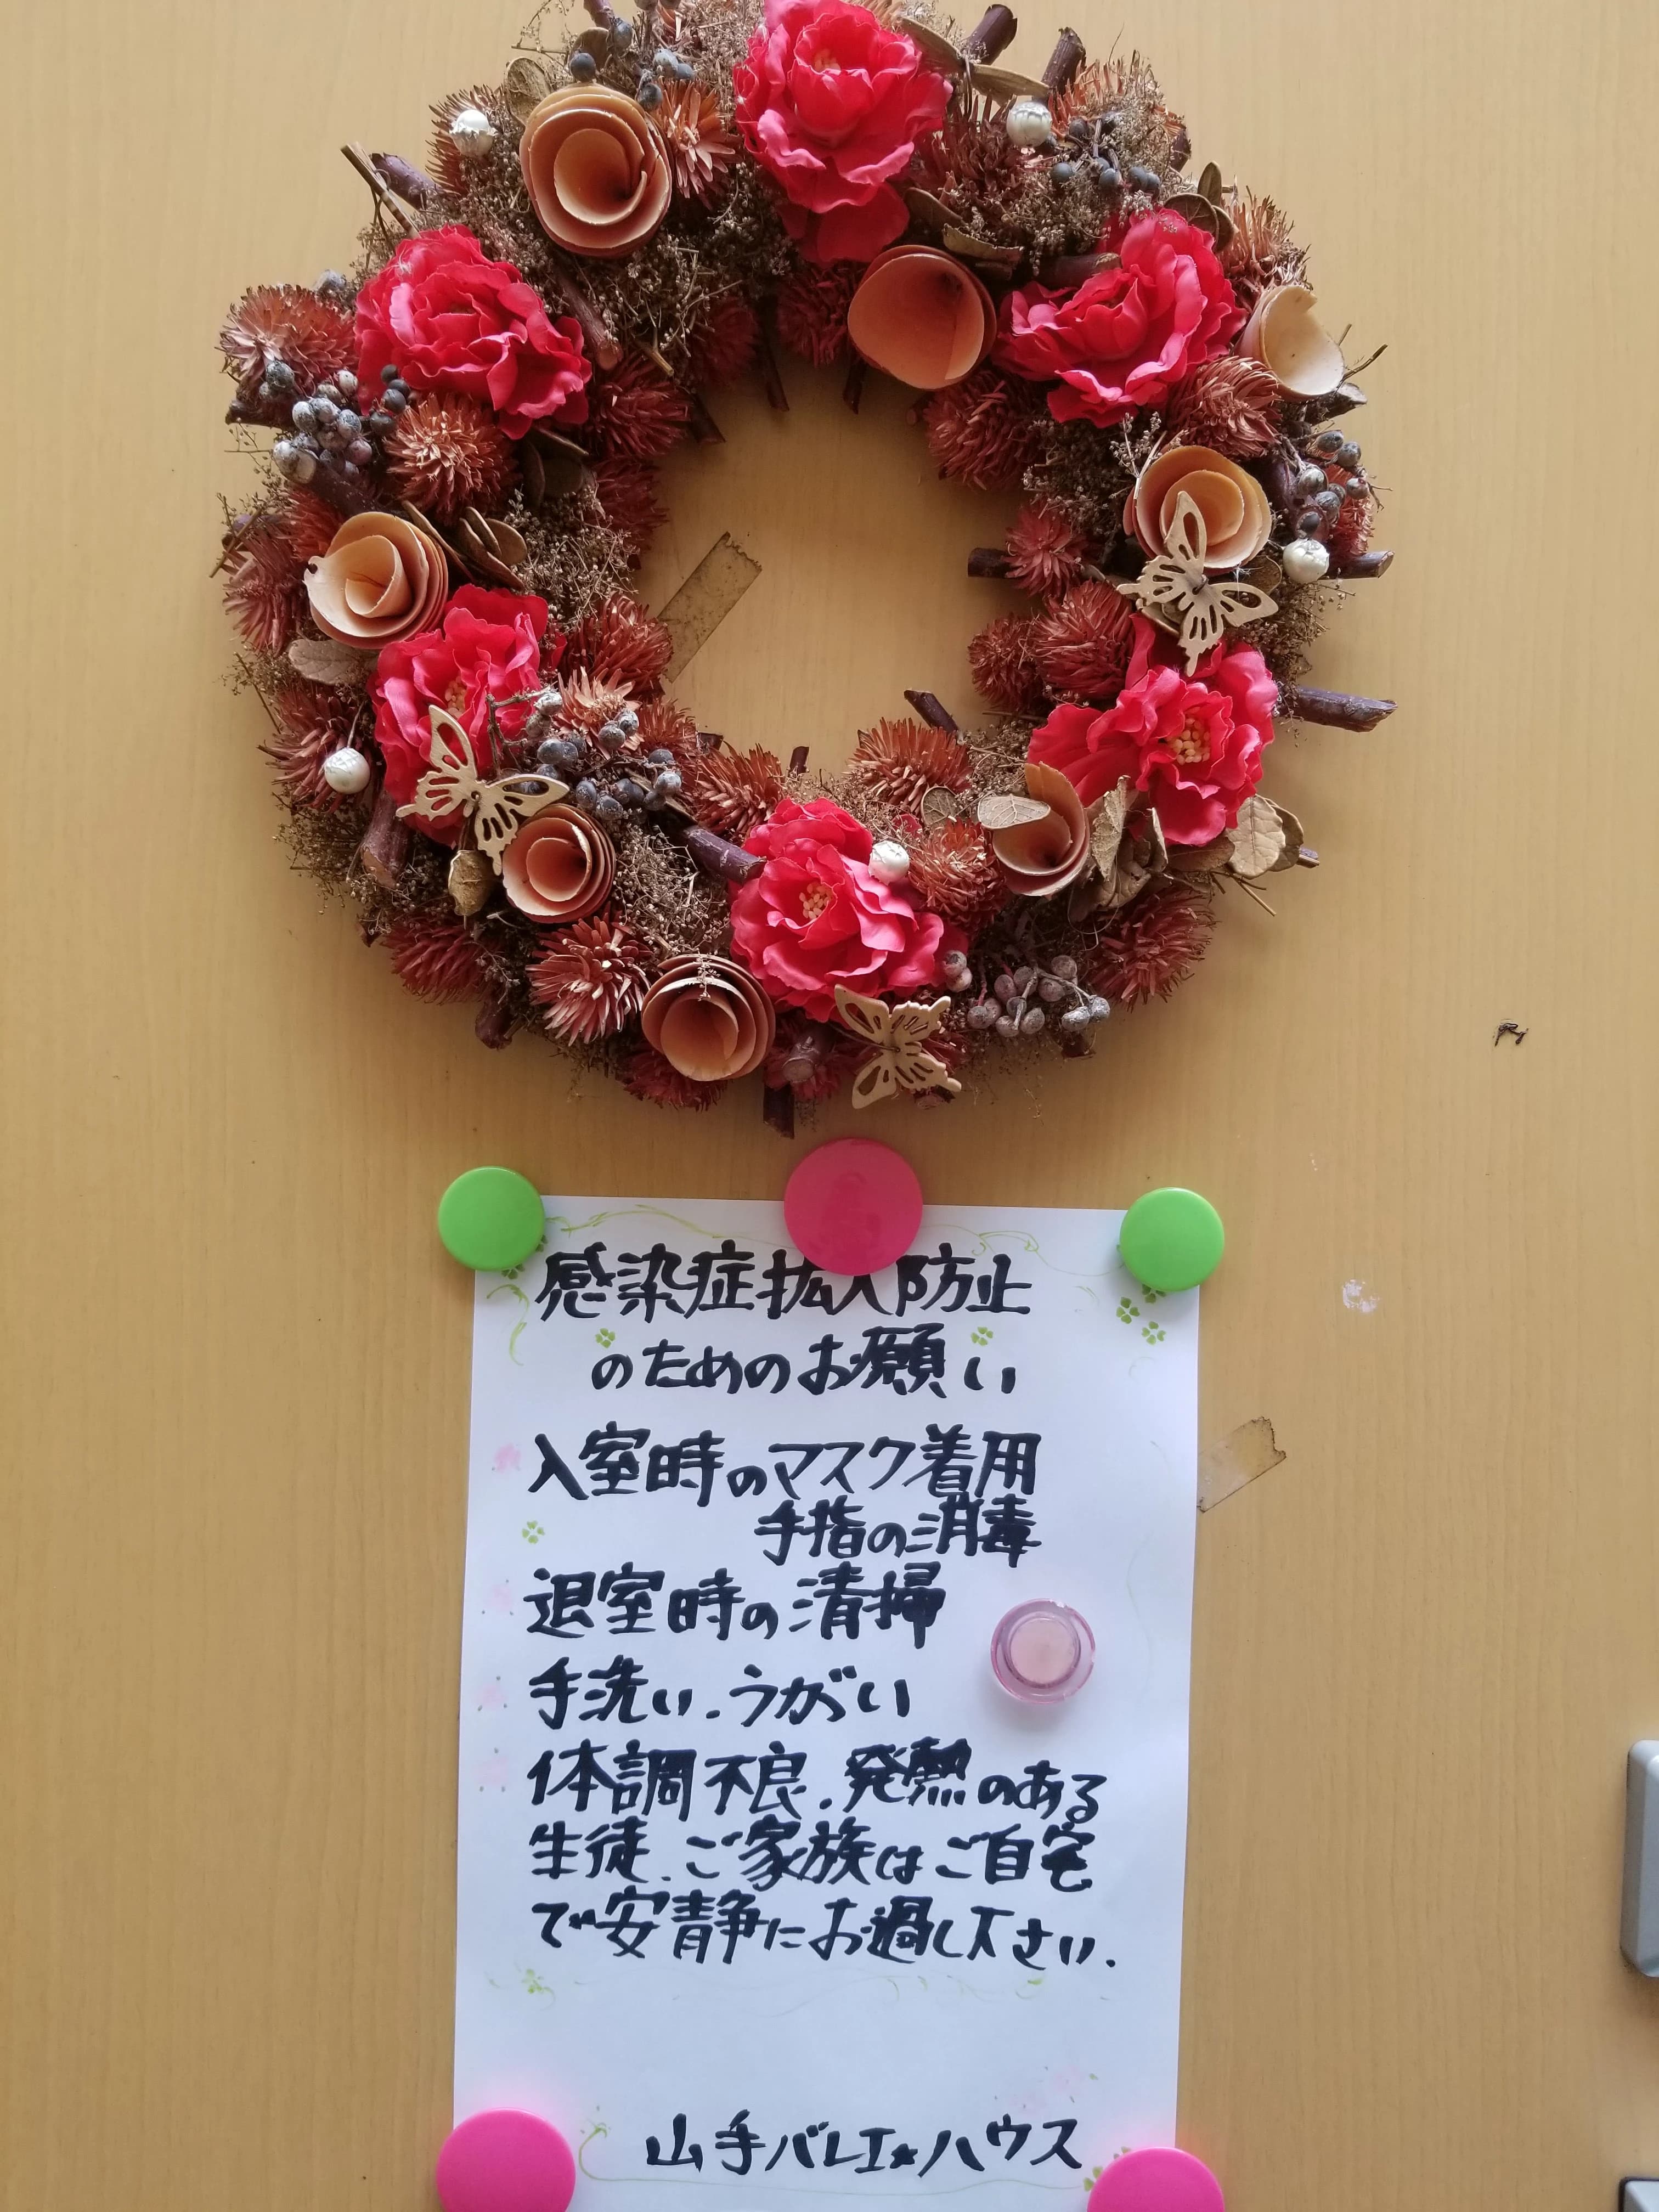 感染症拡大防止
のためのお願い
入室時のマスク着用
手指の消毒
退室時の清掃
手洗い.うがい
体調不良.発熱のある
生徒.ご家族はご自宅
で安静にお過し下さい.
山手バレエ★ハウス